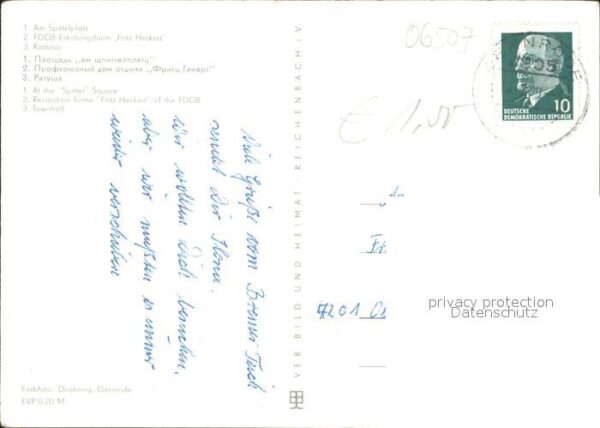 1. Am Spittelplatz
2. FDGB-Erholungsheim „Fritz Heckert"
3. Rathaus
1. Площадь „ам шпиттелплатц"
2. Профсоюзный дом отдыха „Фритц Гекерт"
3. Ратуша
1. At the "Spittel" Square
2. Recreation home "Fritz Heckert" of the FDGB
3. Townhall
Viele Grüße vom
sendet Dir Ilona.
Wir wollten Dich besuchen,
aber wir mußten es immer
wieder verschieben
Farbfoto: Doehring, Gernrode
EVP 0,20 M
VEB BILD UND HEIMAT · REICHENBACH I. V.
06507
€ 1,00
10
DEUTSCHE
DEMOKRATISCHE REPUBLIK
An
Fr
7201
privacy protection
Datenschutz